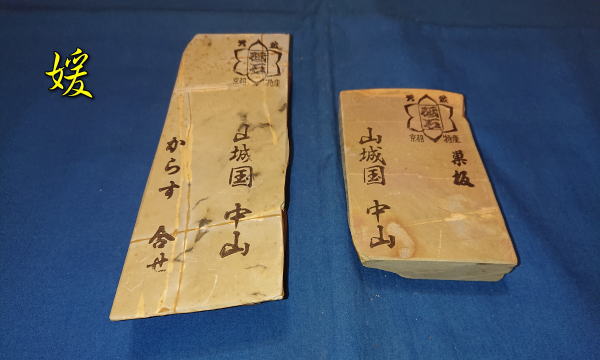 媛
天然
砥石
京都 特産
山城国 中山
からす 合せ
天然
砥石
京都 特産
巣板
山城国 中山